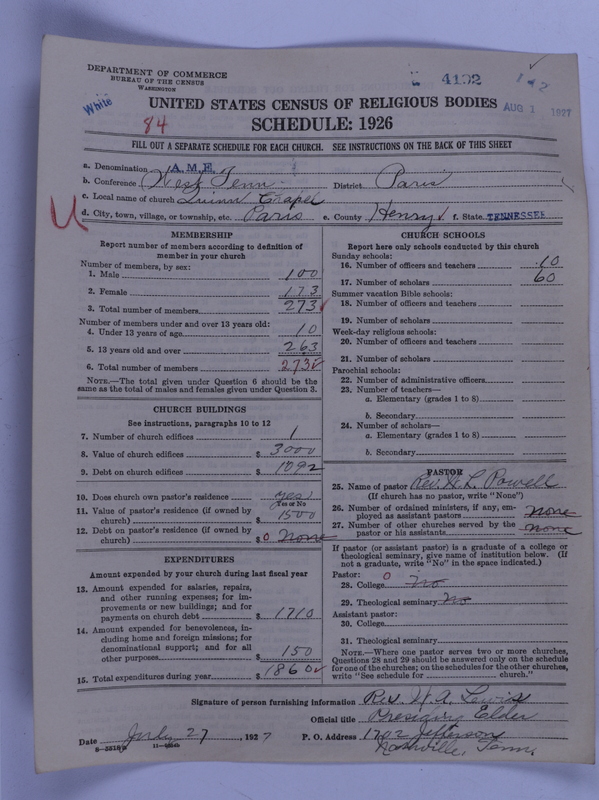 DEPARTMENT OF COMMERCE
BUREAU OF THE CENSUS
WASHINGTON
4192
1 2
White
84
AUG 1 1927
UNITED STATES CENSUS OF RELIGIOUS BODIES
SCHEDULE: 1926
FILL OUT A SEPARATE SCHEDULE FOR EACH CHURCH. SEE INSTRUCTIONS ON THE BACK OF THIS SHEET
a. Denomination A.M.E.
b. Conference West Tenn District Paris
c. Local name of church Quinn Chapel
d. City, town, village, or township, etc. Paris e. County Henry f. State TENNESSEE
MEMBERSHIP
Report number of members according to definition of
member in your church
Number of members, by sex:
1. Male 100
2. Female 173
3. Total number of members 273
Number of members under and over 13 years old:
4. Under 13 years of age 10
5. 13 years old and over 263
6. Total number of members 273
NOTE.—The total given under Question 6 should be the
same as the total of males and females given under Question 3.
CHURCH BUILDINGS
See instructions, paragraphs 10 to 12
7. Number of church edifices 1
8. Value of church edifices $ 3000
9. Debt on church edifices $ 1092
10. Does church own pastor's residence yes
Yes or No
11. Value of pastor's residence (if owned by
church) $ 1500
12. Debt on pastor's residence (if owned by
church) $ 0 None
EXPENDITURES
Amount expended by your church during last fiscal year
13. Amount expended for salaries, repairs,
and other running expenses; for im-
provements or new buildings; and for
payments on church debt $ 1710
14. Amount expended for benevolences, in-
cluding home and foreign missions; for
denominational support; and for all
other purposes $ 150
15. Total expenditures during year $ 1860
CHURCH SCHOOLS
Report here only schools conducted by this church
Sunday schools:
16. Number of officers and teachers 10
17. Number of scholars 60
Summer vacation Bible schools:
18. Number of officers and teachers
19. Number of scholars
Week-day religious schools:
20. Number of officers and teachers
21. Number of scholars
Parochial schools:
22. Number of administrative officers
23. Number of teachers—
a. Elementary (grades 1 to 8)
b. Secondary
24. Number of scholars—
a. Elementary (grades 1 to 8)
b. Secondary
PASTOR
25. Name of pastor Rev. L. Powell
(If church has no pastor, write "None")
26. Number of ordained ministers, if any, em-
ployed as assistant pastors None
27. Number of other churches served by the
pastor or his assistants None
If pastor (or assistant pastor) is a graduate of a college or
theological seminary, give name of institution below. (If
not a graduate, write "No" in the space indicated.)
Pastor:
28. College 0 No
29. Theological seminary No
Assistant pastor:
30. College
31. Theological seminary
NOTE.—Where one pastor serves two or more churches,
Questions 28 and 29 should be answered only on the schedule
for one of the churches; on the schedules for the other churches,
write "See schedule for church."
Signature of person furnishing information Rev. W. A. Lewis
Official title Presiding Elder
Date July 27, 1927 P. O. Address 1702 Jefferson
Nashville, Tenn.